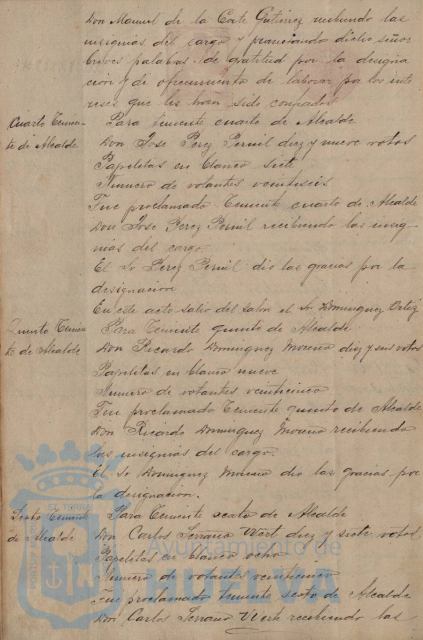 Don Manuel de la Corte Gutierrez recibiendo las
insignias del cargo y pronunciando dicho señor
breves palabras de gratitud por la designa
ción y de ofrecimiento de laborar por los inte
reses que les han sido confiados.
Cuarto Tenien-
te de Alcalde
Para teniente cuarto de Alcalde
Don Jose Perez diez y nueve votos
Papeletas en blanco siete
Numero de votantes veintiseis
Fue proclamado Teniente cuarto de Alcalde
Don Jose Perez recibiendo las insig
nias del cargo.
El Sr Perez dio las gracias por la
designacion
En este acto salio del salon el Sr Dominguez Ortiz
Quinto Tenien
te de Alcalde
Para Teniente quinto de Alcalde
Don Ricardo Dominguez Moreno diez y seis votos
Papeletas en blanco nueve
Numero de votantes veinticinco
Fue proclamado Teniente quinto de Alcalde
Don Ricardo Dominguez Moreno recibiendo
las insignias del cargo.
El Sr Dominguez Moreno dio las gracias por
la designacion.
Sexto Teniente
de Alcalde
Para Teniente sexto de Alcalde
Don Carlos Serrano diez y siete votos
Papeletas en blanco ocho
Numero de votantes veinticinco
Fue proclamado teniente sexto de Alcalde
Don Carlos Serrano recibiendo las
Ayuntamiento de